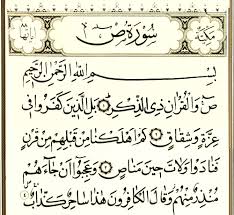 سُورَةُ صٓ
بِسْمِ اللهِ الرَّحْمٰنِ الرَّحِيمِ
صٓ وَالْقُرْآنِ ذِي الذِّكْرِ بَلِ الَّذِينَ كَفَرُوا فِي
عِزَّةٍ وَشِقَاقٍ كَمْ أَهْلَكْنَا مِنْ قَبْلِهِمْ مِنْ قَرْنٍ
فَنَادَوْا وَلَاتَ حِينَ مَنَاصٍ وَعَجِبُوا أَنْ جَاءَهُمْ
مُنْذِرٌ مِنْهُمْ وَقَالَ الْكَافِرُونَ هٰذَا سَاحِرٌ كَذَّابٌ